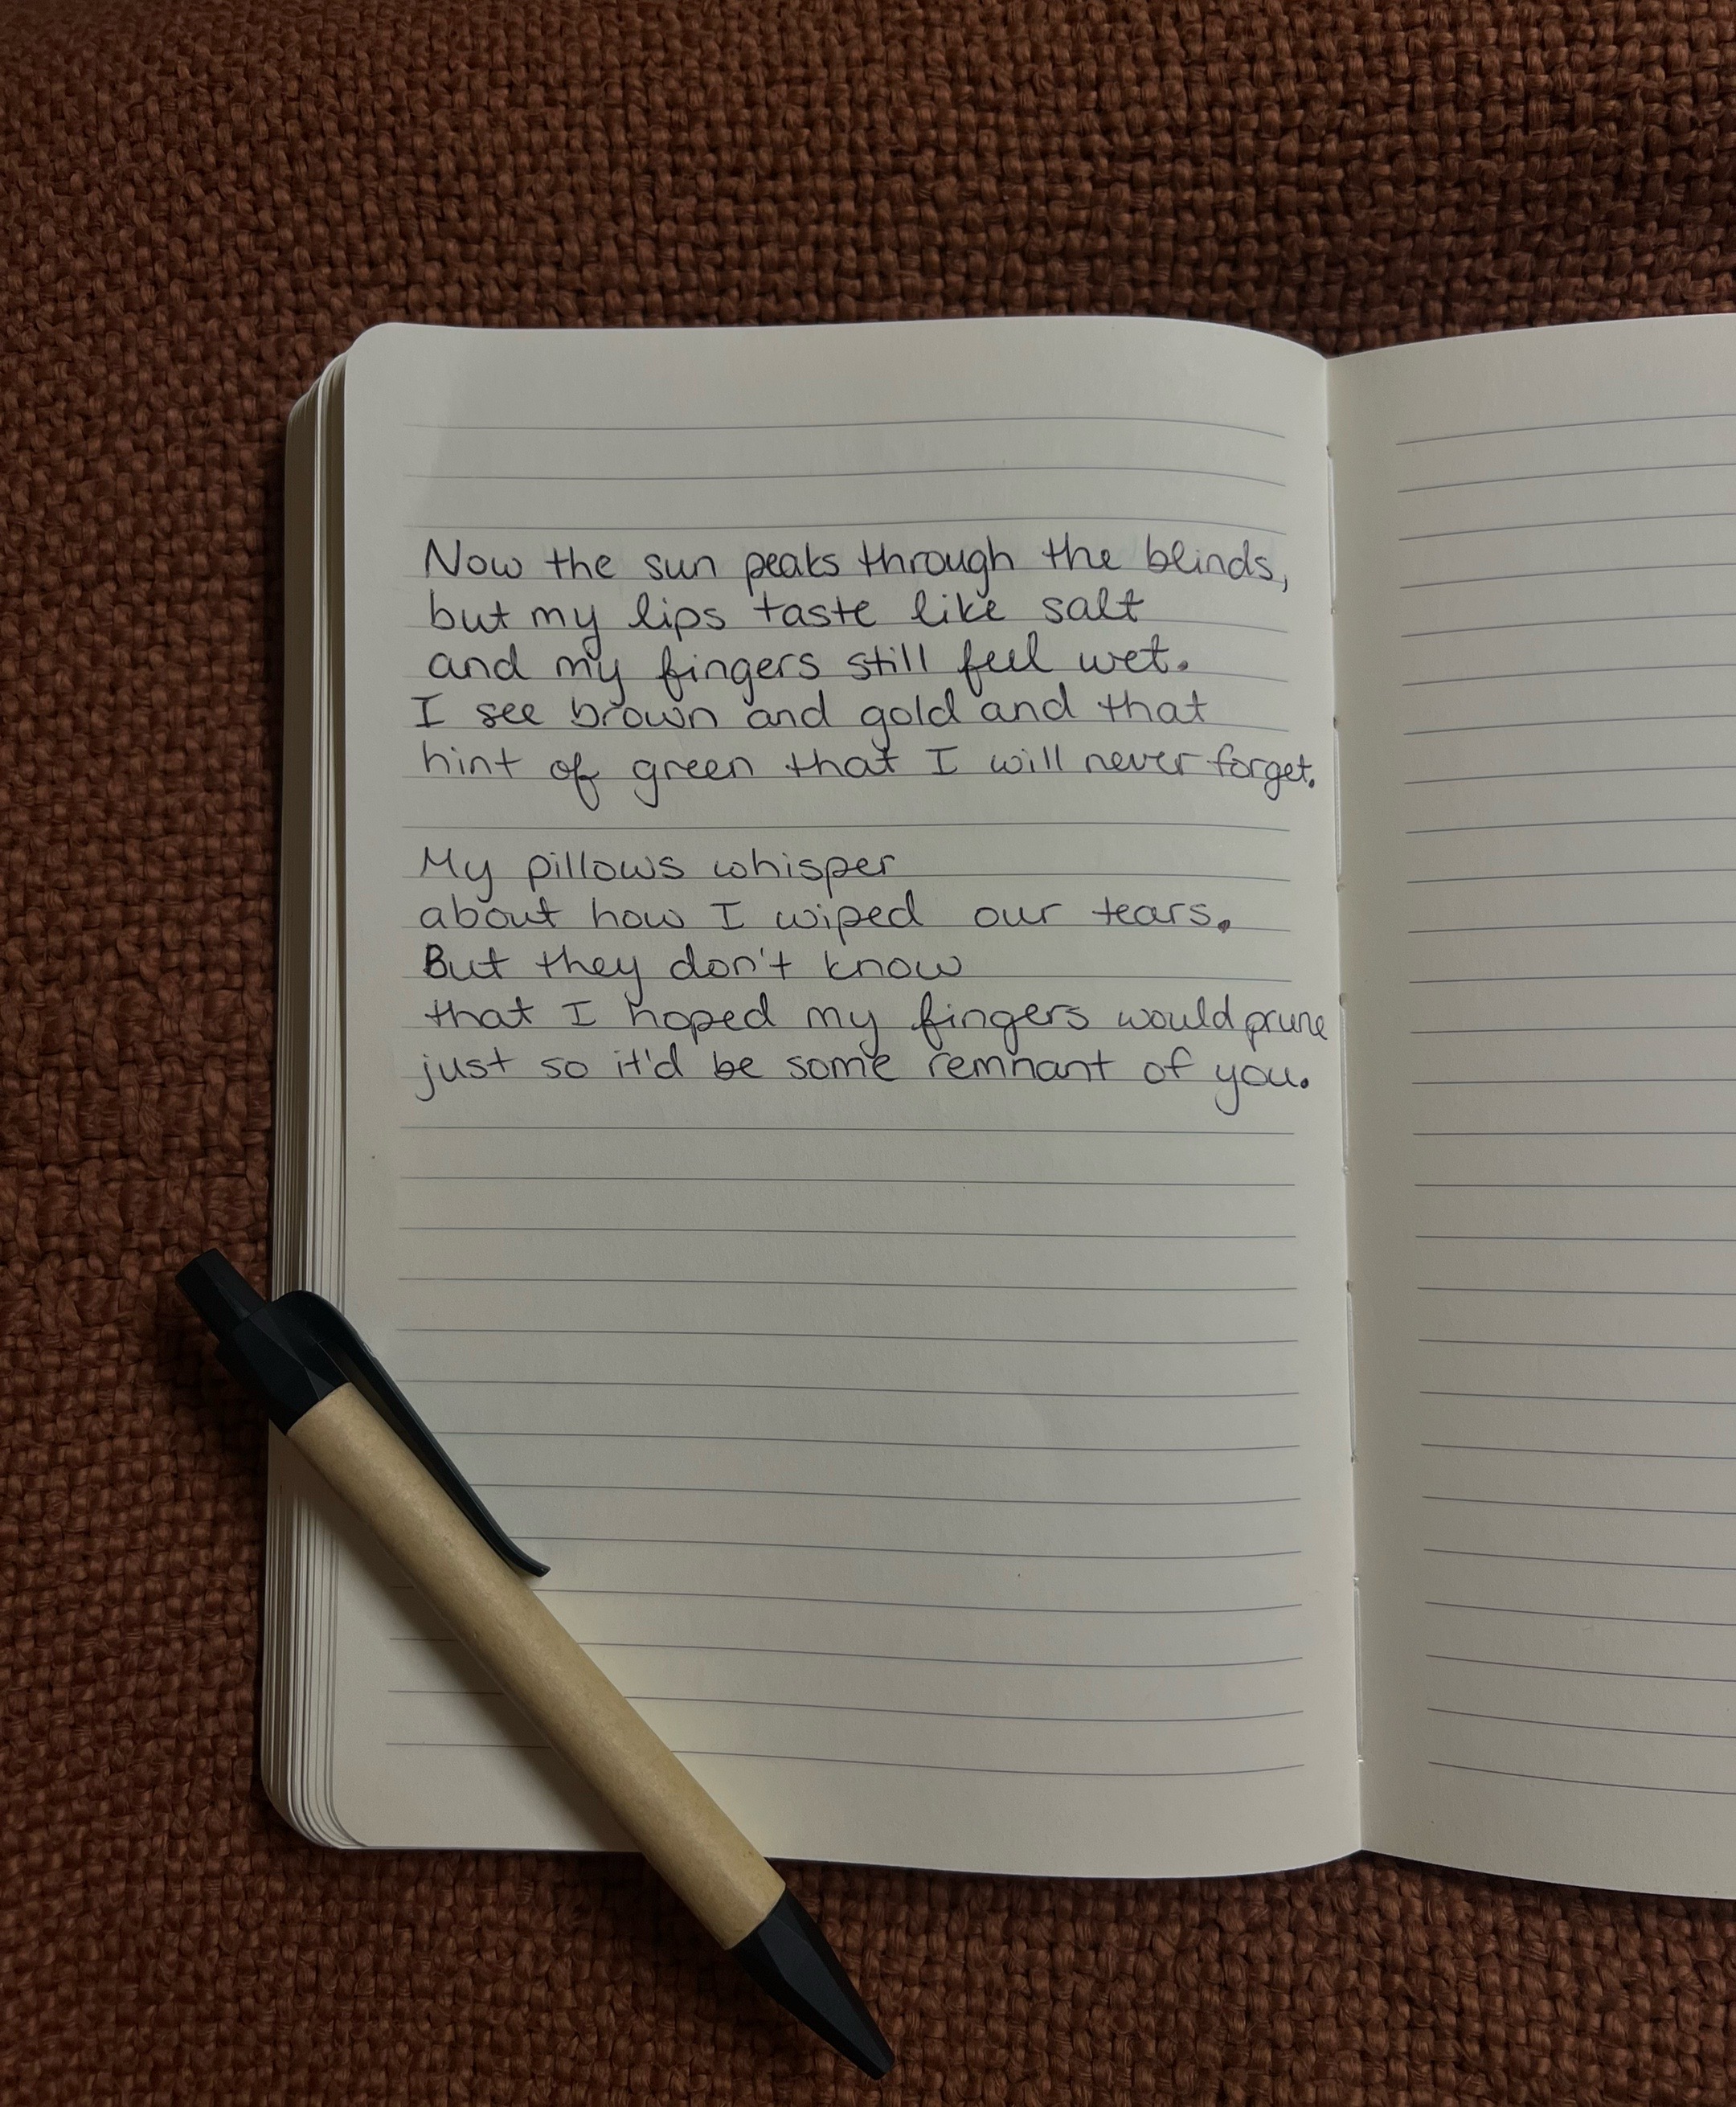 Now the sun peaks through the blinds,
but my lips taste like salt
and my fingers still feel wet.
I see brown and gold and that
hint of green that I will never forget.
My pillows whisper
about how I wiped our tears.
But they don't know
that I hoped my fingers would prune
just so it'd be some remnant of you.